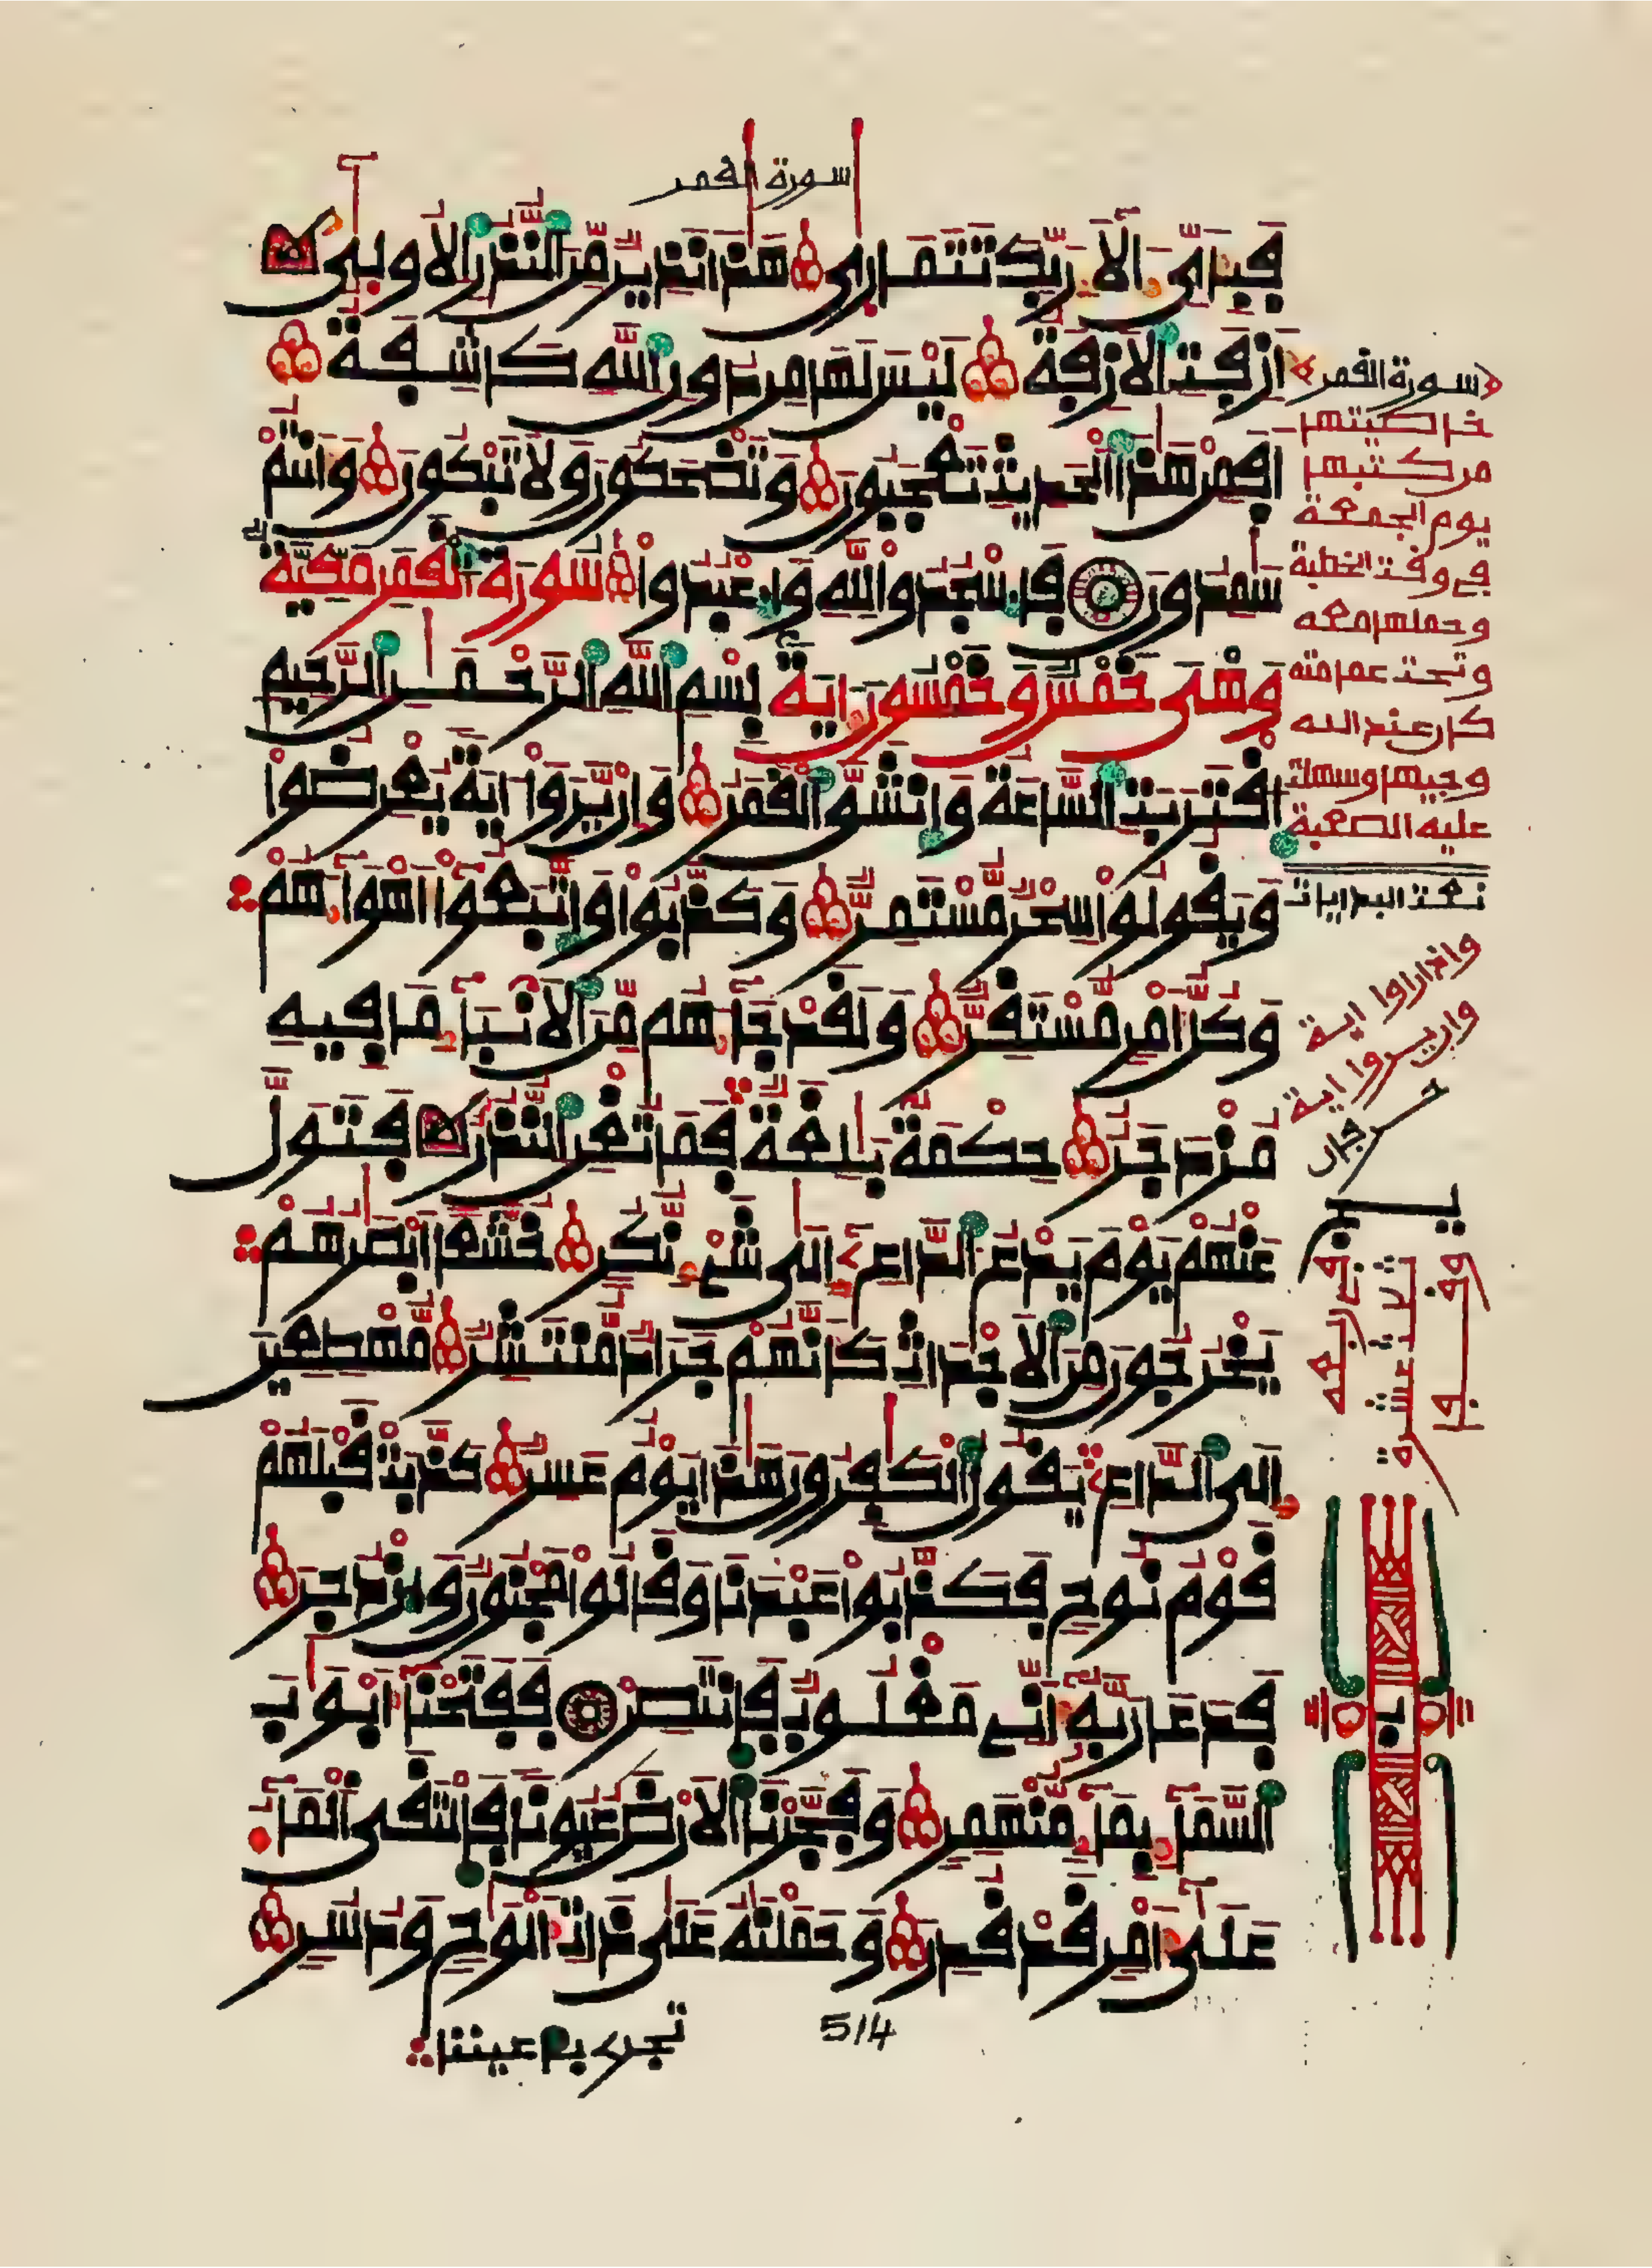 سورة القمر
فَبِأَىِّ ءَالَآءِ رَبِّكَ تَتَمَارَىٰ هَٰذَا نَذِيرٌ مِّنَ ٱلنُّذُرِ ٱلْأُولَىٰٓ
أَزِفَتِ ٱلْأَزِفَةُ لَيْسَ لَهَا مِن دُونِ ٱللَّهِ كَاشِفَةٌ
أَفَمِنْ هَٰذَا ٱلْحَدِيثِ تَعْجَبُونَ وَتَضْحَكُونَ وَلَا تَبْكُونَ وَأَنتُمْ
سَٰمِدُونَ فَٱسْجُدُوا لِلَّهِ وَٱعْبُدُوا سُورَةُ ٱلْقَمَرِ مَكِّيَّةٌ
وَهْىَ خَمْسٌ وَخَمْسُونَ ءَايَةً بِسْمِ ٱللَّهِ ٱلرَّحْمَٰنِ ٱلرَّحِيمِ
ٱقْتَرَبَتِ ٱلسَّاعَةُ وَٱنشَقَّ ٱلْقَمَرُ وَإِن يَرَوْا ءَايَةً يُعْرِضُوا
وَيَقُولُوا سِحْرٌ مُّسْتَمِرٌّ وَكَذَّبُوا وَٱتَّبَعُوٓا أَهْوَآءَهُمْ
وَكُلُّ أَمْرٍ مُّسْتَقِرٌّ وَلَقَدْ جَآءَهُم مِّنَ ٱلْأَنۢبَآءِ مَا فِيهِ
مُزْدَجَرٌ حِكْمَةٌ بَٰلِغَةٌ فَمَا تُغْنِ ٱلنُّذُرُ فَتَوَلَّ
عَنْهُمْ يَوْمَ يَدْعُ ٱلدَّاعِۦٓ إِلَىٰ شَىْءٍ نُّكُرٍ خُشَّعًا أَبْصَٰرُهُمْ
يَخْرُجُونَ مِنَ ٱلْأَجْدَاثِ كَأَنَّهُمْ جَرَادٌ مُّنتَشِرٌ مُّهْطِعِينَ
إِلَى ٱلدَّاعِۦ يَقُولُ ٱلْكَٰفِرُونَ هَٰذَا يَوْمٌ عَسِرٌ كَذَّبَتْ قَبْلَهُمْ
قَوْمُ نُوحٍ فَكَذَّبُوا عَبْدَنَا وَقَالُوا مَجْنُونٌ وَٱزْدُجِرَ
فَدَعَا رَبَّهُۥٓ أَنِّى مَغْلُوبٌ فَٱنتَصِرْ فَفَتَحْنَآ أَبْوَٰبَ
ٱلسَّمَآءِ بِمَآءٍ مُّنْهَمِرٍ وَفَجَّرْنَا ٱلْأَرْضَ عُيُونًا فَٱلْتَقَى ٱلْمَآءُ
عَلَىٰٓ أَمْرٍ قَدْ قُدِرَ وَحَمَلْنَٰهُ عَلَىٰ ذَاتِ أَلْوَٰحٍ وَدُسُرٍ
تجرى بأعيننا
514
سورة القمر
خاصيتها
من كتبها
يوم الجمعة
في وقت الخطبة
وحملها معه
وتحت عمامته
كان عند الله
وجيها وسهلت
عليه الصعبة
نعت البدايات
واذا راوا اية
وان يروا اية
حرفان